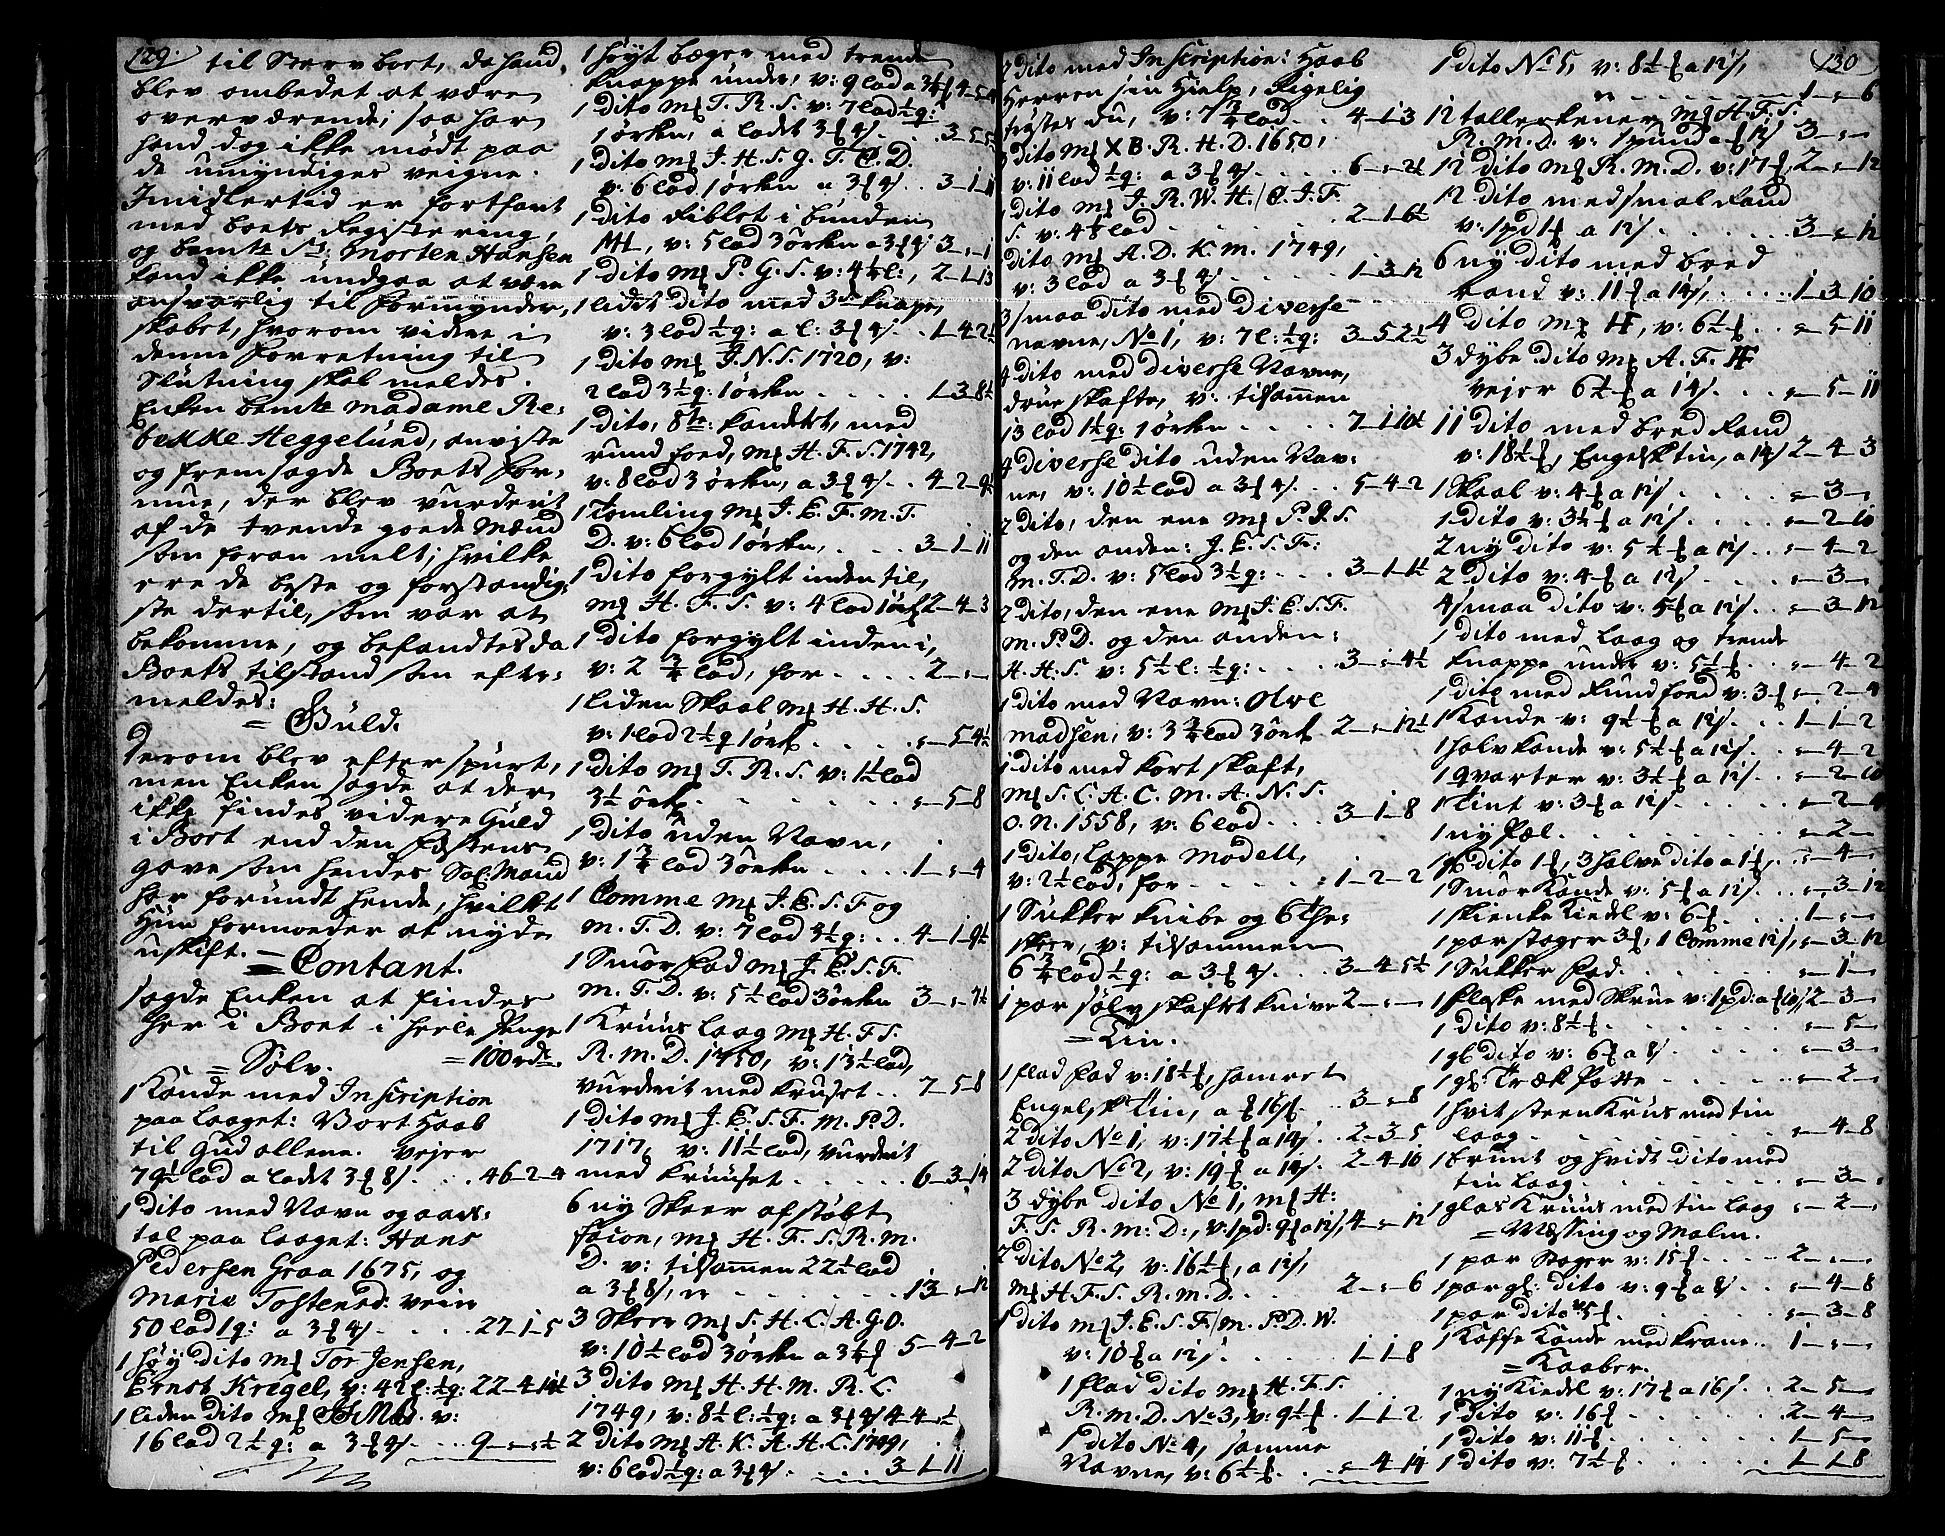 129.
til Stervboet, da hand
blev ombedet at være
overværende; saa har
hand dog ikke mødt paa
de umyndiges veigne.
Imidlertid er fortfaret
med boets Registering,
og bemte Sr: Morten Hansen
kand ikke undgaa at være
ansvarlig til Formynder,
skabet, hvorom videre i
denne Forretning til
Slutning skal meldes.
Enken bemte Madame Re-
bekke Heggelund, anviste
og fremsagde Boets For-
mue, der blev vurderit
af de tvende goede Mænd
som foran melt; hvilke
ere de beste og forstandig-
ste dertil, som var at
bekomme, og befandtes da
Boets tilstand som efter-
meldes:
= Guld.
Derom blev efterspurt,
men Enken sagde at der
ikke findes videre Guld
i Boet end den Fæstens
gave som hendes Sal: Mand
har forundt hende, hvilket
Hun formoeder at nyde
uskift.
= Contant.
sagde Enken at findes
her i Boet i heele Penge
= 100 rdr.
= Sølv.
1 Kande med Inscription
paa laaget: Vort Haab
til Gud allene. vejer
79½ lod a lodet 3 ƒ 8/. . . 46-2-4
1 dito med Navn og aars-
tal paa laaget: Hans
Pedersen Graa 1675, og
Marie Tostensd: vejer
50 lod 1 q: a 3 ƒ 4/. . . . 27-1-5
1 høy dito mƒ Tor Jensen,
Ernst Krigel, v: 42 l: ½ q: 22-4-14½
1 liden dito mƒ v:
16 lod 2½ q: a 3 ƒ 4/. . . 9-"-½
1 høyt bæger med trende
knappe under, v: 9 lod a 3¼ ƒ 4-5-4
1 dito mƒ T. R. S. v: 7 lod ½ q:
1 ørkn, a lodet 3 ƒ 4/. . . 3-5-5
1 dito mƒ J. H. S. G. T. C. D.
v: 6 lod 1 ørkn a 3 ƒ 4/. . 3-1-11
1 dito Riblet i bunden
v: 5 lod 3 ørkn a 3 ƒ 4/ 3-"-1
1 dito mƒ P. G. S. v: 4¼ l:, 2-1-13
1 lidet dito med 3de knape,
v: 3 lod ½ q: a l: 3 ƒ 4/. . 1-4-2½
1 dito mƒ J. N. S. 1720, v:
2 lod 3½ q: 1 ørkn . . . . . 1-3-8½
1 dito, 8te: kandtet, med
rund foed, mƒ H. F. S. 1742,
v: 8 lod 3 ørkn, a 3 ƒ 4/. . 4-2-9½
1 Tomling mƒ J. E. F. M. T.
D. v: 6 lod 1 ørkn, . . . . 3-1-11
1 dito forgylt inden til,
mƒ H. F. S. v: 4 lod 1 ørk 2-4-3
1 dito forgylt inden i,
v: 2 ¾ lod, for . . . . 2-"-"
1 liden Skaal mƒ H. H. S.
v: 1 lod 2½ q 1 ørk . . . . "-5-4½
1 dito mƒ T. R. S. v: 1½ lod
3½ ørk . . . . . . . "-5-8
1 dito uden Navn,
v: 1 ¾ lod 3 ørkn . . . . 1-"-4
1 Comme mƒ J. E. S. F og
M. T. D. v: 7 lod 3½ q: . . 4-1-9½
1 Smørfad mƒ J. E. S. F.
M. T. D. v: 5½ lod 3 ørkn 3-"-7½
1 Kruus laag mƒ H. F. S.
R. M. D. 1750, v: 13½ lod,
vurderit med Kruset . . 7-5-8
1 dito mƒ J. E. S. F. M. P. D.
1717, v: 11½ lod, vurderit
med Kruuset . . . . . 6-3-14
6 ny Skeer af støbt
façion, mƒ H. F. S. R. M.
D. v: tilsammen 22½ lod
a 3 ƒ 8/, er . . . . . . . 13-"-12
3 Skeer mƒ S. H. C. / A. G. O.
v: 10½ lod 3 ørkn a 3¼ ƒ 5-4-2
3 dito mƒ H. H. M. R. C.
1749, v: 8½ l: ½ q: a 3 ƒ 4/ 4-4-½
2 dito mƒ A. K. A. H. C. 1749,
v: 6 lod ½ q: a 3 ƒ 4/. . . . . 3-1-11
2 dito med Inscription: Haab
Herren sin Hielp, Rigelig
trøster du, v: 7 ¾ lod . . 4-1-3
3 dito mƒ X B. R. H. D. 1650,
v: 11 lod ½ q: a 3 ƒ 4/. . . . 6-"-2½
1 dito mƒ J. R. W. H. / C. J. F.
S. v: 4½ lod . . . . . . . 2-1-6½
dito mƒ A. D. K. M. 1749,
v: 3 lod a 3 ƒ 4/. . . . . 1-3-12
3 smaa dito med diverse
navne, No 1, v: 7 l: ½ q: 3-5-2½
4 dito med diverse Navne,
drue skafte, v: tilsammen
13 lod 1½ q: 1 ørkn . . . . 7-1-10½
4 diverse dito uden Nav-
ne, v: 10½ lod a 3 ƒ 4/. . . 5-4-2
2 dito, den ene mƒ P. J. S.
og den anden: J. E. S. F:
M. T. D. v: 5 lod 3½ q: . . . 3-1-1½
2 dito, den ene mƒ J. E. S. F.
M. P. D. og den anden:
H. H. S. v: 5½ l: ½ q: . . . . 3-"-4½
1 dito med Navn: Olve
Madsen, v: 3 ¾ lod 3 ørk 2-"-12½
1 dito med kort skaft,
mƒ S. C. A. C. M. A. N. S.
O. N. 1558, v: 6 lod . . . 3-1-8
1 dito, lappe Modell,
v: 2½ lod, for . . . . . 1-2-2
1 Sukker Knibe og 6 The-
skeer, v: tilsammen
6 ¾ lod ½ q: a 3 ƒ 4/. . . 3-4-5½
1 par sølv skaftet knive 2-"-"
= Tin.
1 flad Fad v: 18½ ƒ, hamret
Engelsk Tin, a ƒ 16/ . . 3-"-8
2 dito No 1, v: 17½ ƒ a 14/. . 2-3-5
2 dito No 2, v: 19 ƒ a 14/. 2-4-10
3 dybe dito No 1, mƒ H.
F. S. R. M. D:, v: 1 pd: 9 ƒ a 12/, 4-"-12
2 dito No 2, v: 16½ ƒ, a 12/,
mƒ H. F. S. R. M. D. . . 2-"-6
1 dito mƒ J. E. S. F / M. P. D. W.
v: 10 ƒ a 12/. . . . . . 1-1-8
1 flad dito mƒ H. F. S.
R. M. D. No 3, v: 9½ ƒ . 1-1-2
1 dito No 4, samme
Navne, v: 6½ ƒ . . . "-4-14
130
1 dito No 5, v: 8½ ƒ a 12/,
er . . . . . . . . 1-"-6
12 tallerkener mƒ H. F. S.
R. M. D. v: 1 pund a ƒ 12/ 3-"-"
12 dito mƒ R. M. D. v: 17 ƒ, 2-"-12
12 dito med smal Rand
v: 1 pd 1 ƒ a 12/ . . . . . . 3-"-12
6 ny dito med bred
Rand v: 11 ƒ a 14/, . . . 1-3-10
4 dito mƒ H, v: 6½ ƒ . . "-5-11
3 dybe dito mƒ A. F. H
vejer 6½ ƒ a 14/. . . "-5-11
11 dito med bred Rand
v: 18½ ƒ, Engelsk tin, a 14/ 2-4-3
1 Skaal v: 4 ƒ a 12/ . . . . . "-3-"
1 dito v: 3½ ƒ a 12/ . . . . "-2-10
2 ny dito v: 5½ ƒ a 12/. . "-4-2
2 dito v: 4 ƒ a 12/ . . . . "-3-"
4 smaa dito v: 5 ƒ a 12/. . "-3-12
1 dito med laag og trende
knappe under v: 5½ ƒ . . "-4-2
1 dito med Rund foed v: 3 ƒ "-2-4
1 Kande v: 9½ ƒ a 12/. . . 1-1-2
1 halv kande v: 5½ ƒ a 12/. . "-4-2
1 qvarter v: 3½ ƒ a 12/. . . "-2-10
1 Pint v: 3 ƒ a 12/. . . . . "-2-4
1 ny Pæl . . . . . . . . "-2-"
1 gl dito 1 ƒ, 3 halve dito a 1 ƒ, . "-4-"
1 Smør Kande v: 5 ƒ a 12/. . . "-3-12
1 skienke Kiedel v: 6 ƒ . . . . 1-"-"
1 par stager 3 ƒ, 1 Comme 12/, "-3-12
1 Sukker Fad . . . . . . . "-1-"
1 flaske med Skrue v: 1 pd: a ƒ 10/, 2-3-"
1 dito v: 8½ ƒ . . . . . . . "-5-"
1 gl dito v: 6 ƒ a 8/ . . . . . "-3-"
1 gl: Træk Potte . . . . . . "-2-"
1 hvit steen Kruus med tin
laag . . . . . . . . . . "-4-8
1 bruunt og hvidt dito med
tin laag . . . . . . . . . "-3-"
1 glas Kruus med tin laag "-2-"
= Messing og Malm.
1 par Stager v: 15 ƒ . . . 2-"-"
1 par gl: dito v: 9 ƒ a 8/ . . . "-4-8
1 par dito v: 5 ƒ . . . . . . "-3-8
1 Kaffe Kande med krane . . 1-"-"
= Kaaber.
1 ny Kiedel v: 17 ƒ a 16/. . 2-5-"
1 dito v: 16 ƒ . . . . . . 2-4-"
1 dito v: 11 ƒ . . . . . . 1-5-"
1 dito v: 7½ ƒ . . . . . . 1-1-8